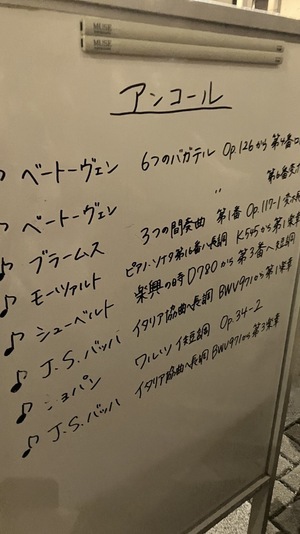 MUSE
MUSE
アンコール
♪ ベートーヴェン 6つのバガテル Op.126から 第4番ロ
♪ ベートーヴェン 〃 第6番変ホ
♪ ブラームス 3つの間奏曲 第1番 Op.117-1 変ホ長
♪ モーツァルト ピアノ・ソナタ第16番ハ長調 K545から第1楽章
♪ シューベルト 楽興の時 D780から 第3番ヘ短調
♪ J.S.バッハ イタリア協曲ヘ長調 BWV971から第1楽章
♪ ショパン ワルツ イ短調 Op.34-2
♪ J.S.バッハ イタリア協曲ヘ長調 BWV971から第3楽章